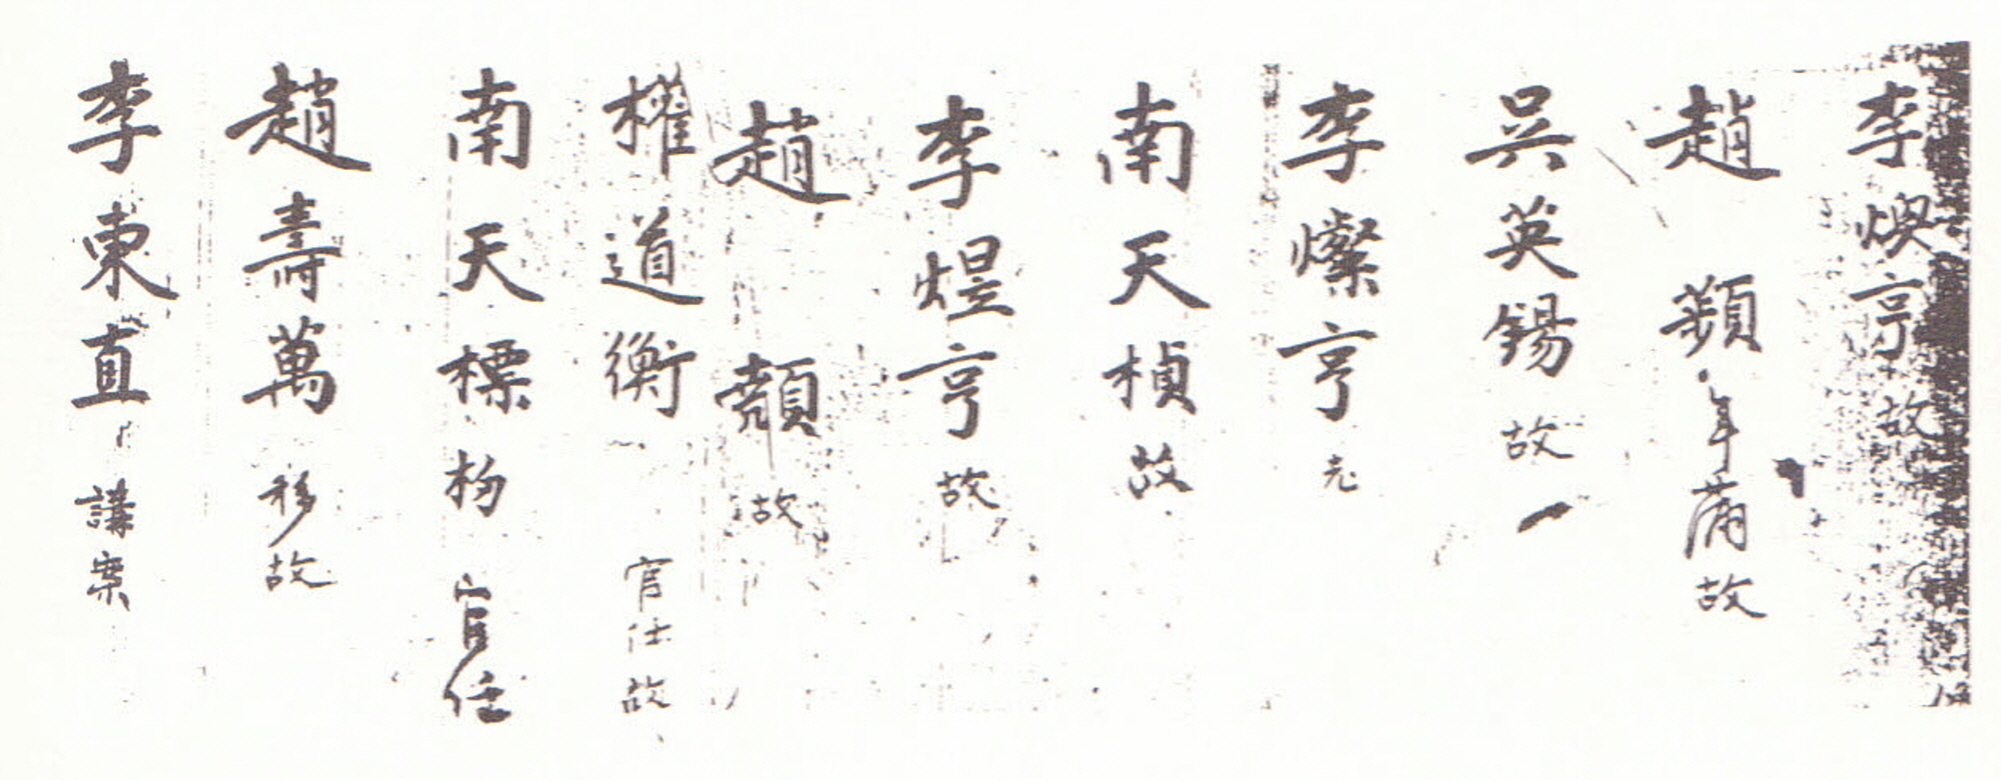 李煥亨 故
趙 䫟 年滿 故
吳英錫 故
李燦亨 老
南天楨 故
李煜亨 故
趙 䫉 故
權道衡 官仕 故
南天標 官任
趙壽萬 移 故
李東直 講案